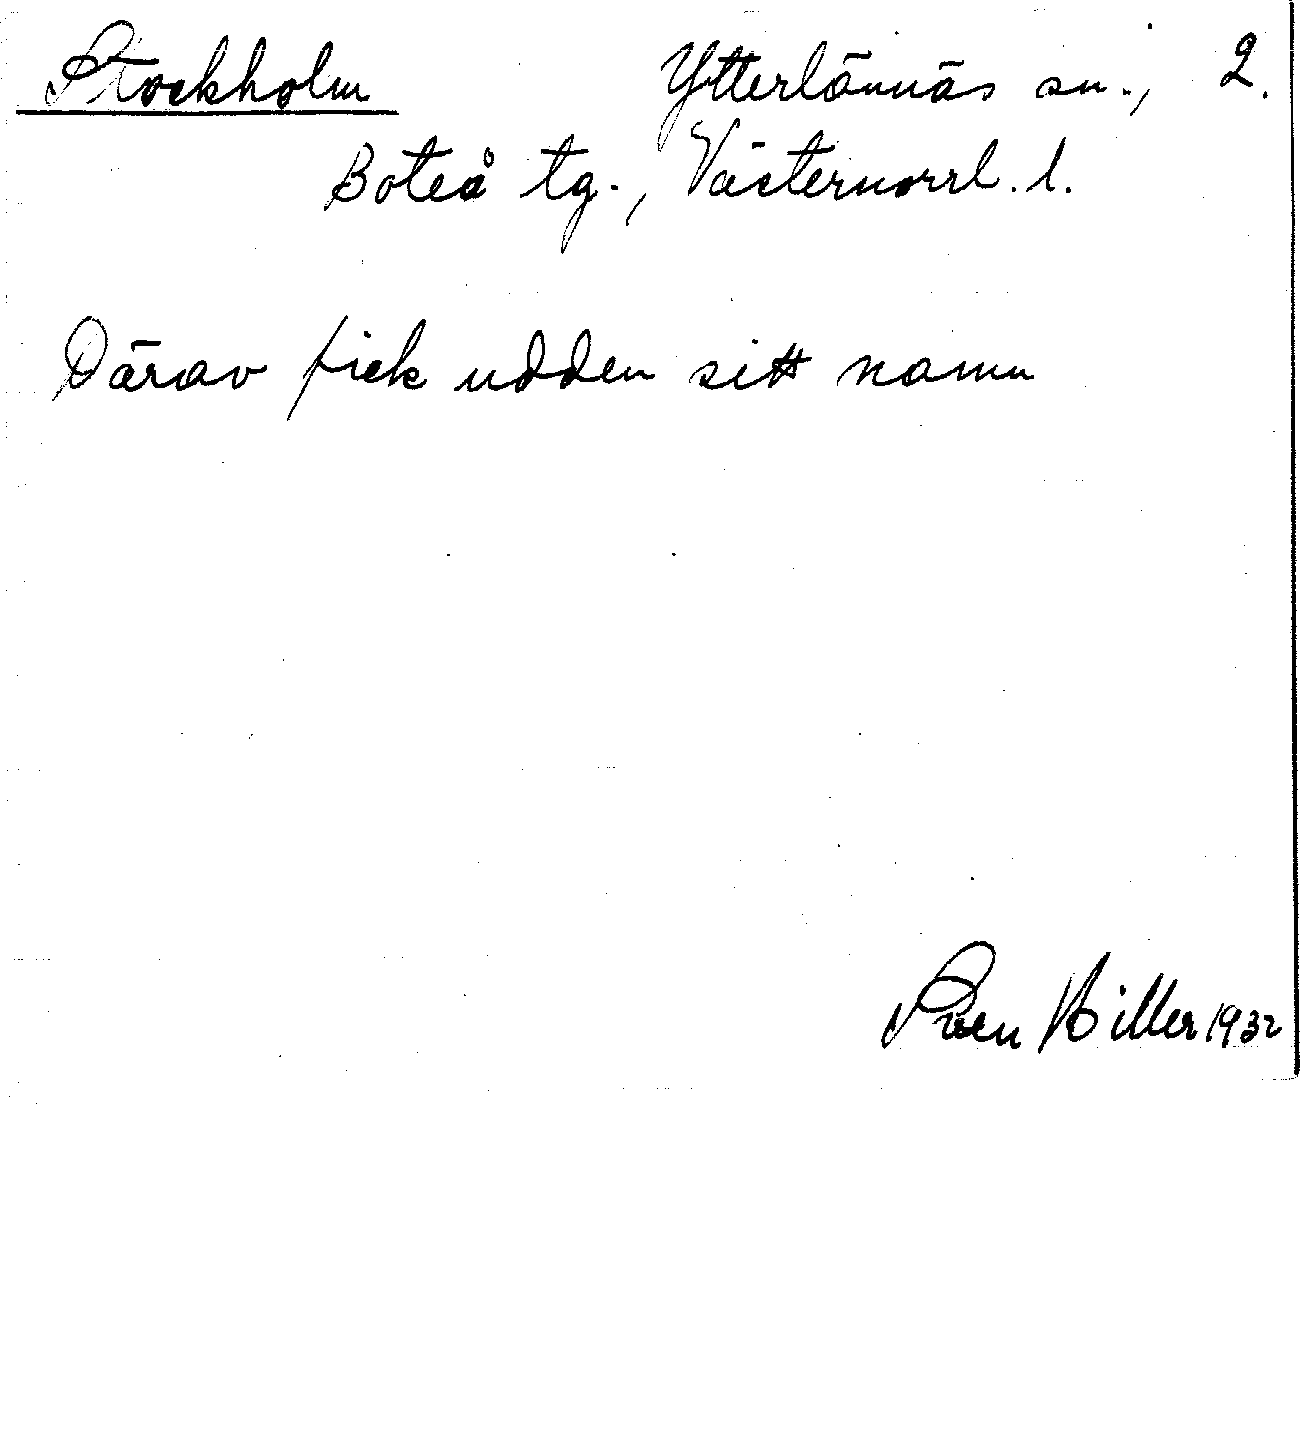 Stockholm Ytterlännäs sn., 2.
Boteå tg., Västernorrl. l.
Därav fick udden sitt namn
Sven Hiller 1932